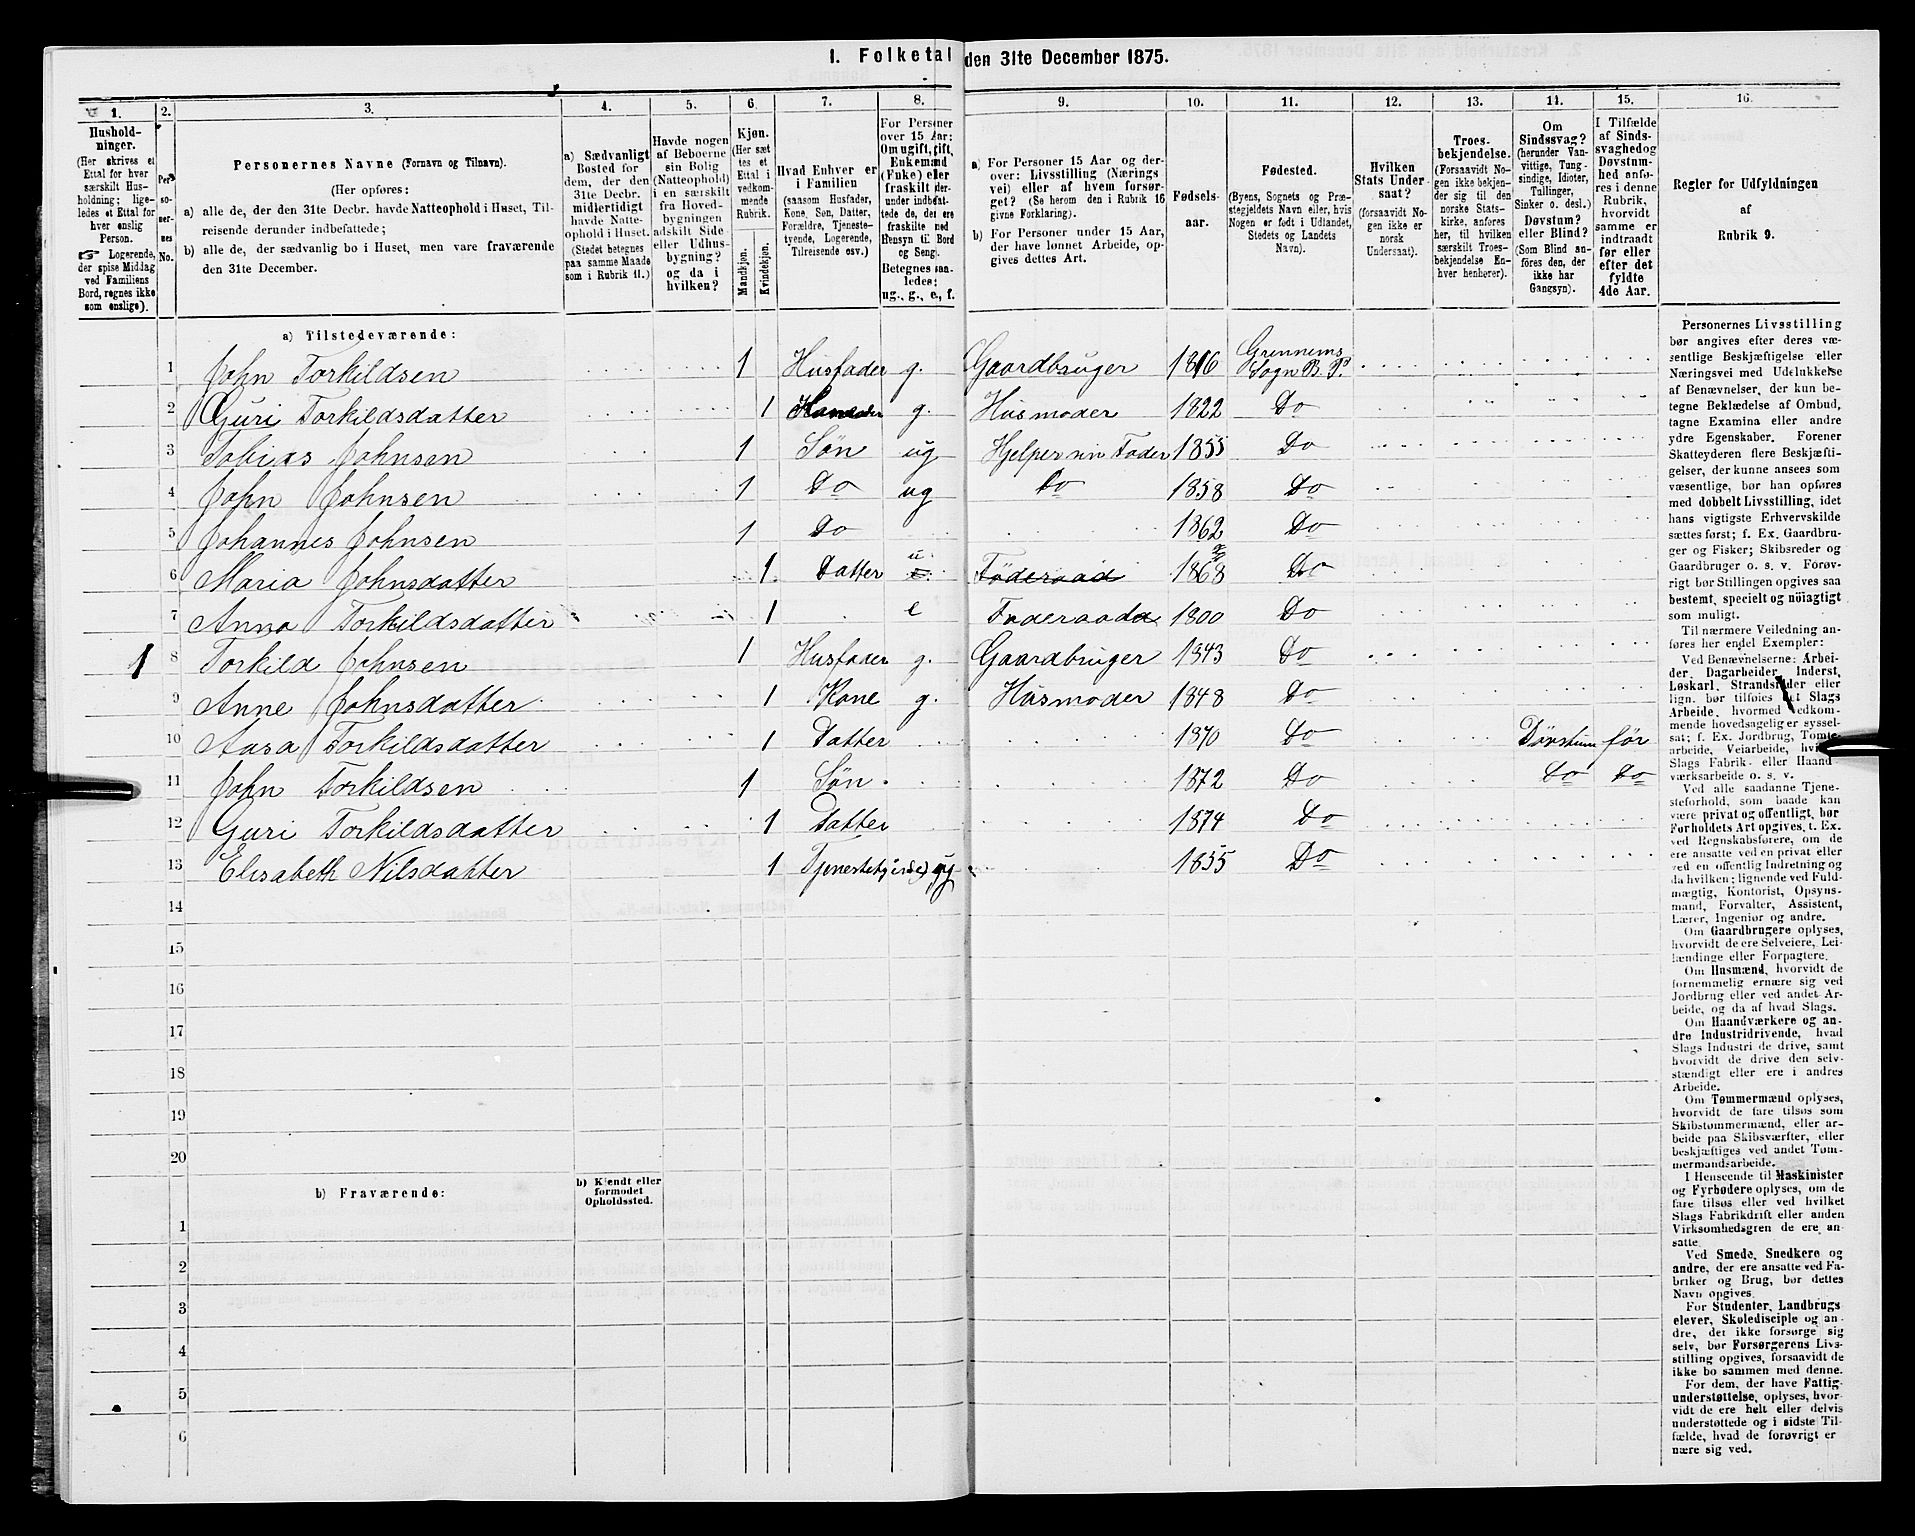 1. Folketal den 31te December 1875.
1. 2. 3. 4. 5. 6. 7. 8. 9. 10. 11. 12. 13. 14. 15. 16.
Hushold-
ninger.
(Her skrives et
Ettal for hver
særskilt Hus-
holdning; lige-
ledes et Ettal for
hver enslig
Person.
☞ Logerende,
der spise Middag
ved Familiens
Bord, regnes ikke
som enslige).
Per-
so-
ner-
nes
No.
Personernes Navne (Fornavn og Tilnavn).
(Her opføres:
a) alle de, der den 31te Decbr. havde Natteophold i Huset, Til-
reisende derunder indbefattede;
b) alle de, der sædvanlig bo i Huset, men vare fraværende
den 31te December.
a) Sædvanligt
Bosted for
dem, der den
31te Decbr.
midlertidigt
havde Natte-
ophold i Huset.
(Stedet betegnes
paa samme Maade
som i Rubrik 11.)
Havde nogen
af Beboerne
sin Bolig
(Natteophold)
i en særskilt
fra Hoved-
bygningen
adskilt Side
eller Udhus-
bygning?
og da i
hvilken?
Kjøn.
(Her sæt
tes et
Ettal i
vedkom-
mende
Rubrik.
Mandkjøn.
Kvindekjøn.
Hvad Enhver er
i Familien
(saasom Husfader,
Kone, Søn, Datter,
Forældre, Tjeneste-
tyende, Logerende,
Tilreisende osv.)
For Personer
over 15 Aar:
Om ugift, gift,
Enkemand
(Enke) eller
fraskilt (der-
under indbefat-
tede de, der ere
fraskilte med
Hensyn til Bord
og Seng).
Betegnes saa-
ledes:
ug., g., e., f.
a) For Personer 15 Aar og der-
over: Livsstilling (Nærings
vei) eller af hvem forsør-
get? (Se herom den i Rubrik 16
givne Forklaring).
b) For Personer under 15 Aar,
der have lønnet Arbeide, op-
gives dettes Art.
Fødsels-
aar.
Fødested.
(Byens, Sognets og Præ-
stegjeldets Navn eller, hvis
Nogen er født i Udlandet,
Stedets og Landets
Navn).
Hvilken
Stats Under
saat?
(forsaavidt No-
gen ikke er
norsk
Undersaat).
Troes-
bekjendelse.
(Forsaavidt No-
gen ikke bekjen-
der sig til den
norske Stats-
kirke, anføres
her, til hvilken
særskilt Troes-
bekjendelse En-
hver henhører).
Om
Sindssvag?
(herunder Van-
vittige, Tung-
sindige, Idioter,
Tullinger,
Sinker o. desl.)
Døvstum?
eller Blind?
(Som Blind an-
føres den, der
ikke har
Gangsyn).
I Tilfælde
af Sinds-
svaghed og
Døvstum-
hed anfø-
res i denne
Rubrik,
hvorvidt
samme er
indtraadt
før eller
efter det
fyldte
4de Aar.
Regler for Udfyldningen
af
Rubrik 9.
a) Tilstedeværende:
1 John Torkildsen 1 Husfader g. Gaardbruger 1816 Grennems Sogn B. P.
2 Guri Torkildsdatter 1 g. Husmoder 1822 Do
3 Tobias Johnsen 1 Søn ug Hjelper sin Fader 1855 Do
4 John Johnsen 1 Do ug Do 1858 Do
5 Johannes Johnsen 1 Do 1862 Do
6 Maria Johnsdatter 1 Datter u Föderaad 1868 Do
7 Anna Torkildsdatter 1 e Foderaad 1800 Do
1 8 Torkild Johnsen 1 Husfader g. Gaardbruger 1843 Do
9 Anne Johnsdatter 1 Kone g. Husmoder 1848 Do
10 Aasa Torkildsdatter 1 Datter 1870 Do Dövstum för
11 John Torkildsen 1 Søn 1872 Do Do Do
12 Guri Torkildsdatter 1 Datter 1874 Do
13 Elisabeth Nilsdatter 1 ug 1855 Do
14
15
16
17
18
19
20
b) Fraværende:
b) Kjendt eller
formodet
Opholdssted.
1
2
3
4
5
6
Personernes Livsstilling
bør angives efter deres væ-
sentlige Beskjæftigelse eller
Næringsvei med Udelukkelse
af Benævnelser, der kun be-
tegne Beklædelse af Ombud,
tagne Examina eller andre
ydre Egenskaber. Forener
Skatteyderen flere Beskjæfti-
gelser, der kunne ansees som
væsentlige, bør han opføres
med dobbelt Livsstilling, idet
hans vigtigste Erhvervskilde
sættes først; f. Ex. Gaardbru-
ger og Fisker; Skibsreder og
Gaardbruger o. s. v. Forøv-
rigt bør Stillingen opgives saa
bestemt, specielt og nöiagtigt
som muligt.
Til nærmere Veiledning an-
føres her endel Exempler:
Ved Benævnelserne: Arbei-
der, Dagarbeider, Inderst,
Løskarl, Strandsidder eller
lign. bør tilføies det Slags
Arbeide, hvormed vedkom-
mende hovedsagelig er syssel-
sat; f. Ex. Jordbrug, Tomte-
arbeide, Veiarbeide, hvilket
Slags Fabrik- eller Haand
værksarbeide o. s. v.
Ved alle saadanne Tjene-
steforhold, som baade kan
være privat og offentligt, bør
Forholdets Art opgives, t. Ex.
ved Regnskabsførere, om de
ere ansatte ved en privat eller
ved en offentlig Indretning og
da hvilken; lignende ved Fuld-
mægtig, Kontorist, Opsyns-
mand, Forvalter, Assistent,
Lærer, Ingeniør og andre.
Om Gaardbrugere oplyses,
hvorvidt de ere Selveiere, Lei-
lændinge eller Forpagtere.
Om Husmænd, hvorvidt de
fornemmelig ernære sig ved
Jordbrug eller ved andet Ar-
beide, og da af hvad Slags.
Om Haandværkere og an-
dre Industridrivende, hvad
Slags Industri de drive, samt
hvorvidt de drive den selv-
stændigt eller ere i andres
Arbeide.
Om Tømmermænd oplyses,
hvorvidt de fare tilsøs som
Skibstømmermænd, eller ar-
beide paa Skibsværfter, eller
beskjæftiges ved andet Tøm-
mermandsarbeide.
I Henseende til Maskinister
og Fyrbødere oplyses, om de
fare tilsøs eller ved hvilket
Slags Fabrikdrift eller anden
Virksomhedsgren de ere an-
satte.
Ved Smede, Snedkere og
andre, der ere ansatte ved Fa-
briker og Brug, bør dettes
Navn opgives.
For Studenter, Landbrugs
elever, Skoledisciple og an-
dre, det ikke forsørge sig
selv, bør Forsørgerens Livs-
stilling opgives, forsaavidt de
ikke bo sammen med denne.
For dem, der have Fattig-
understøttelse, oplyses, hvor-
vidt de ere helt eller delvis
understøttede og i sidste Til-
fælde, hvad de forøvrigt er
nære sig ved.